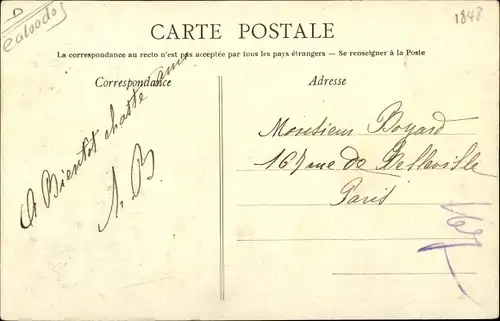 D
Calvados
1848
CARTE POSTALE
La correspondance au recto n'est pas acceptée par tous les pays étrangers — Se renseigner à la Poste
Correspondance
Adresse
A Bientot chasse amie
A. B
Monsieur Boyard
167 rue de Belleville
Paris
167